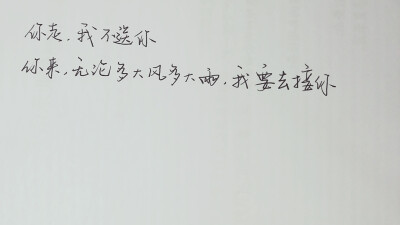 你走，我不送你
你来，无论多大风多大雨，我要去接你